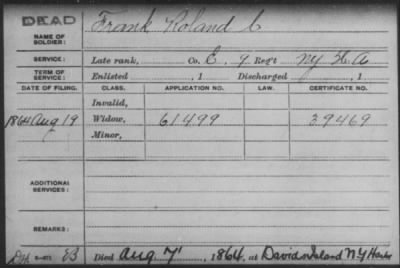 DEAD
NAME OF SOLDIER: Frank Roland C
SERVICE: Late rank, Co. E. 9. Regt NY H A
TERM OF SERVICE: Enlisted , 1 Discharged , 1
DATE OF FILING. CLASS. APPLICATION NO. LAW. CERTIFICATE NO.
Invalid,
1864 Aug 19 Widow, 61499 39469
Minor,
ADDITIONAL SERVICES:
REMARKS:
Died Aug 7, 1864, at Davids Island N.Y Harbor